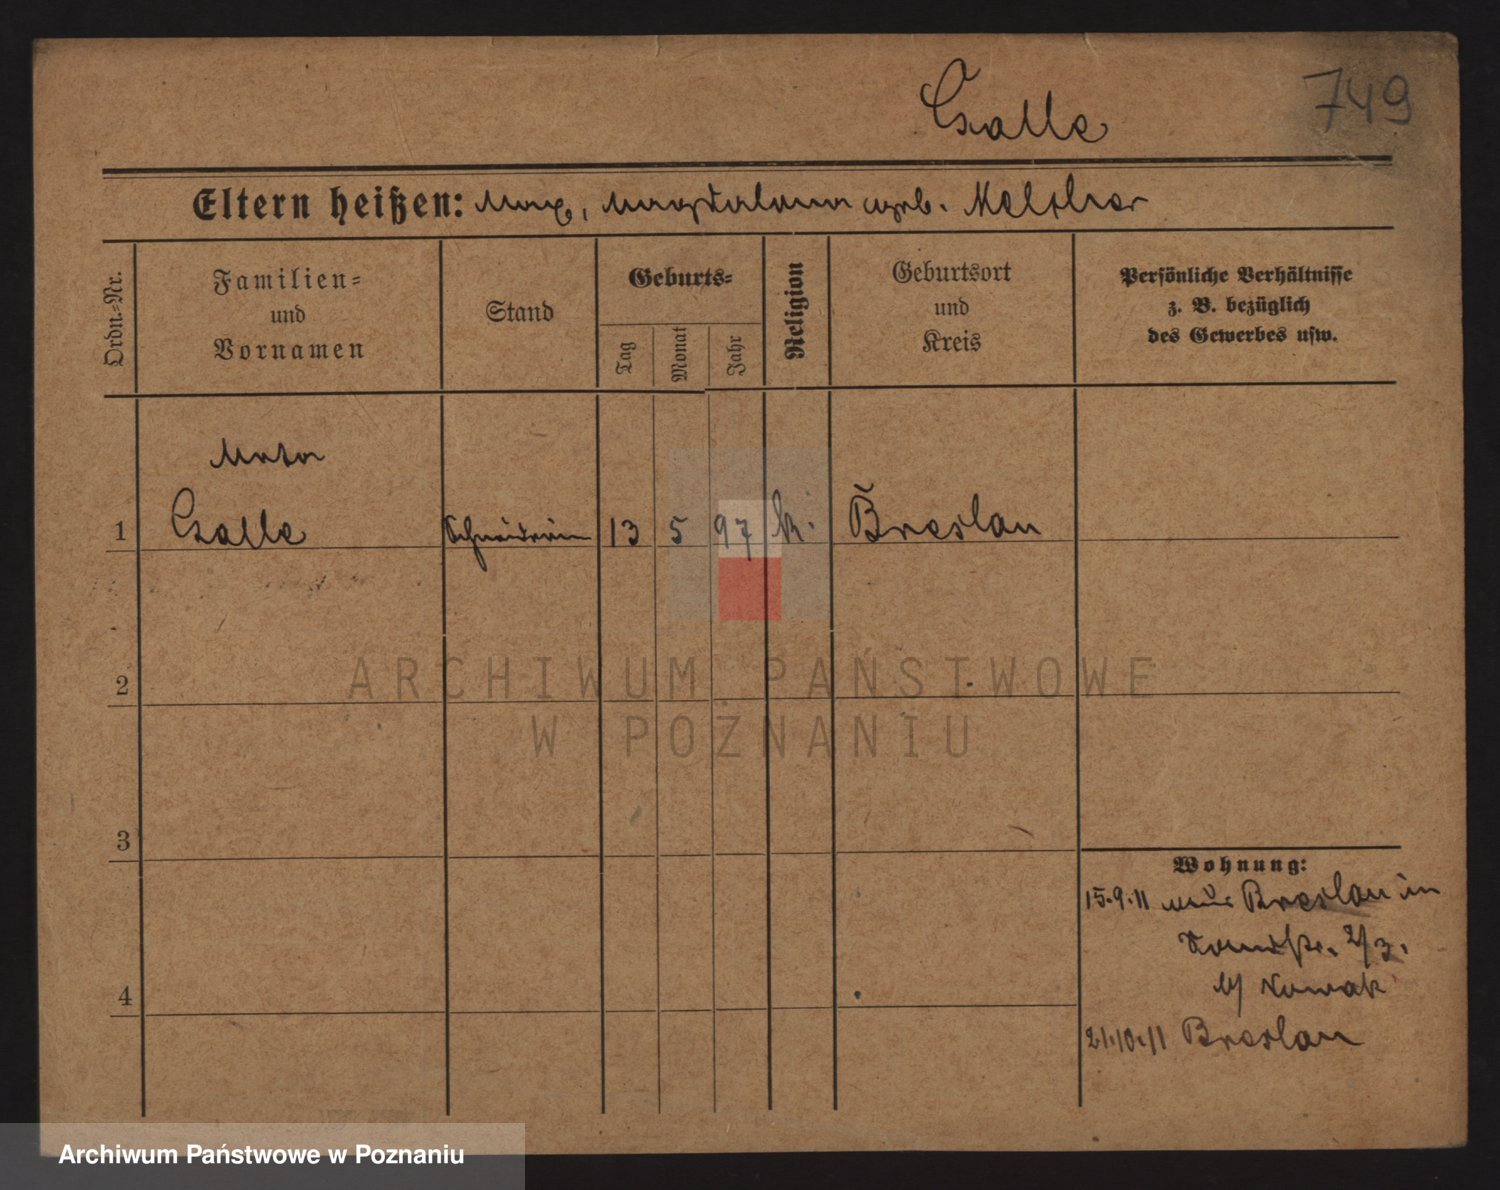 Csalle
749
Eltern heißen: Max, Magdalena geb. Melcher
Ordn.-Nr.
Familien-
und
Vornamen
Stand
Geburts-
Tag
Monat
Jahr
Religion
Geburtsort
und
Kreis
Persönliche Verhältnisse
z. B. bezüglich
des Gewerbes usw.
1
Csalle
Schneiderin
13
5
97
k.
Breslau
2
3
4
Wohnung:
15.9.11 Breslau in
2/3.
b/ Nowak
21.10.11 Breslau
ARCHIWUM PAŃSTWOWE
W POZNANIU
Archiwum Państwowe w Poznaniu